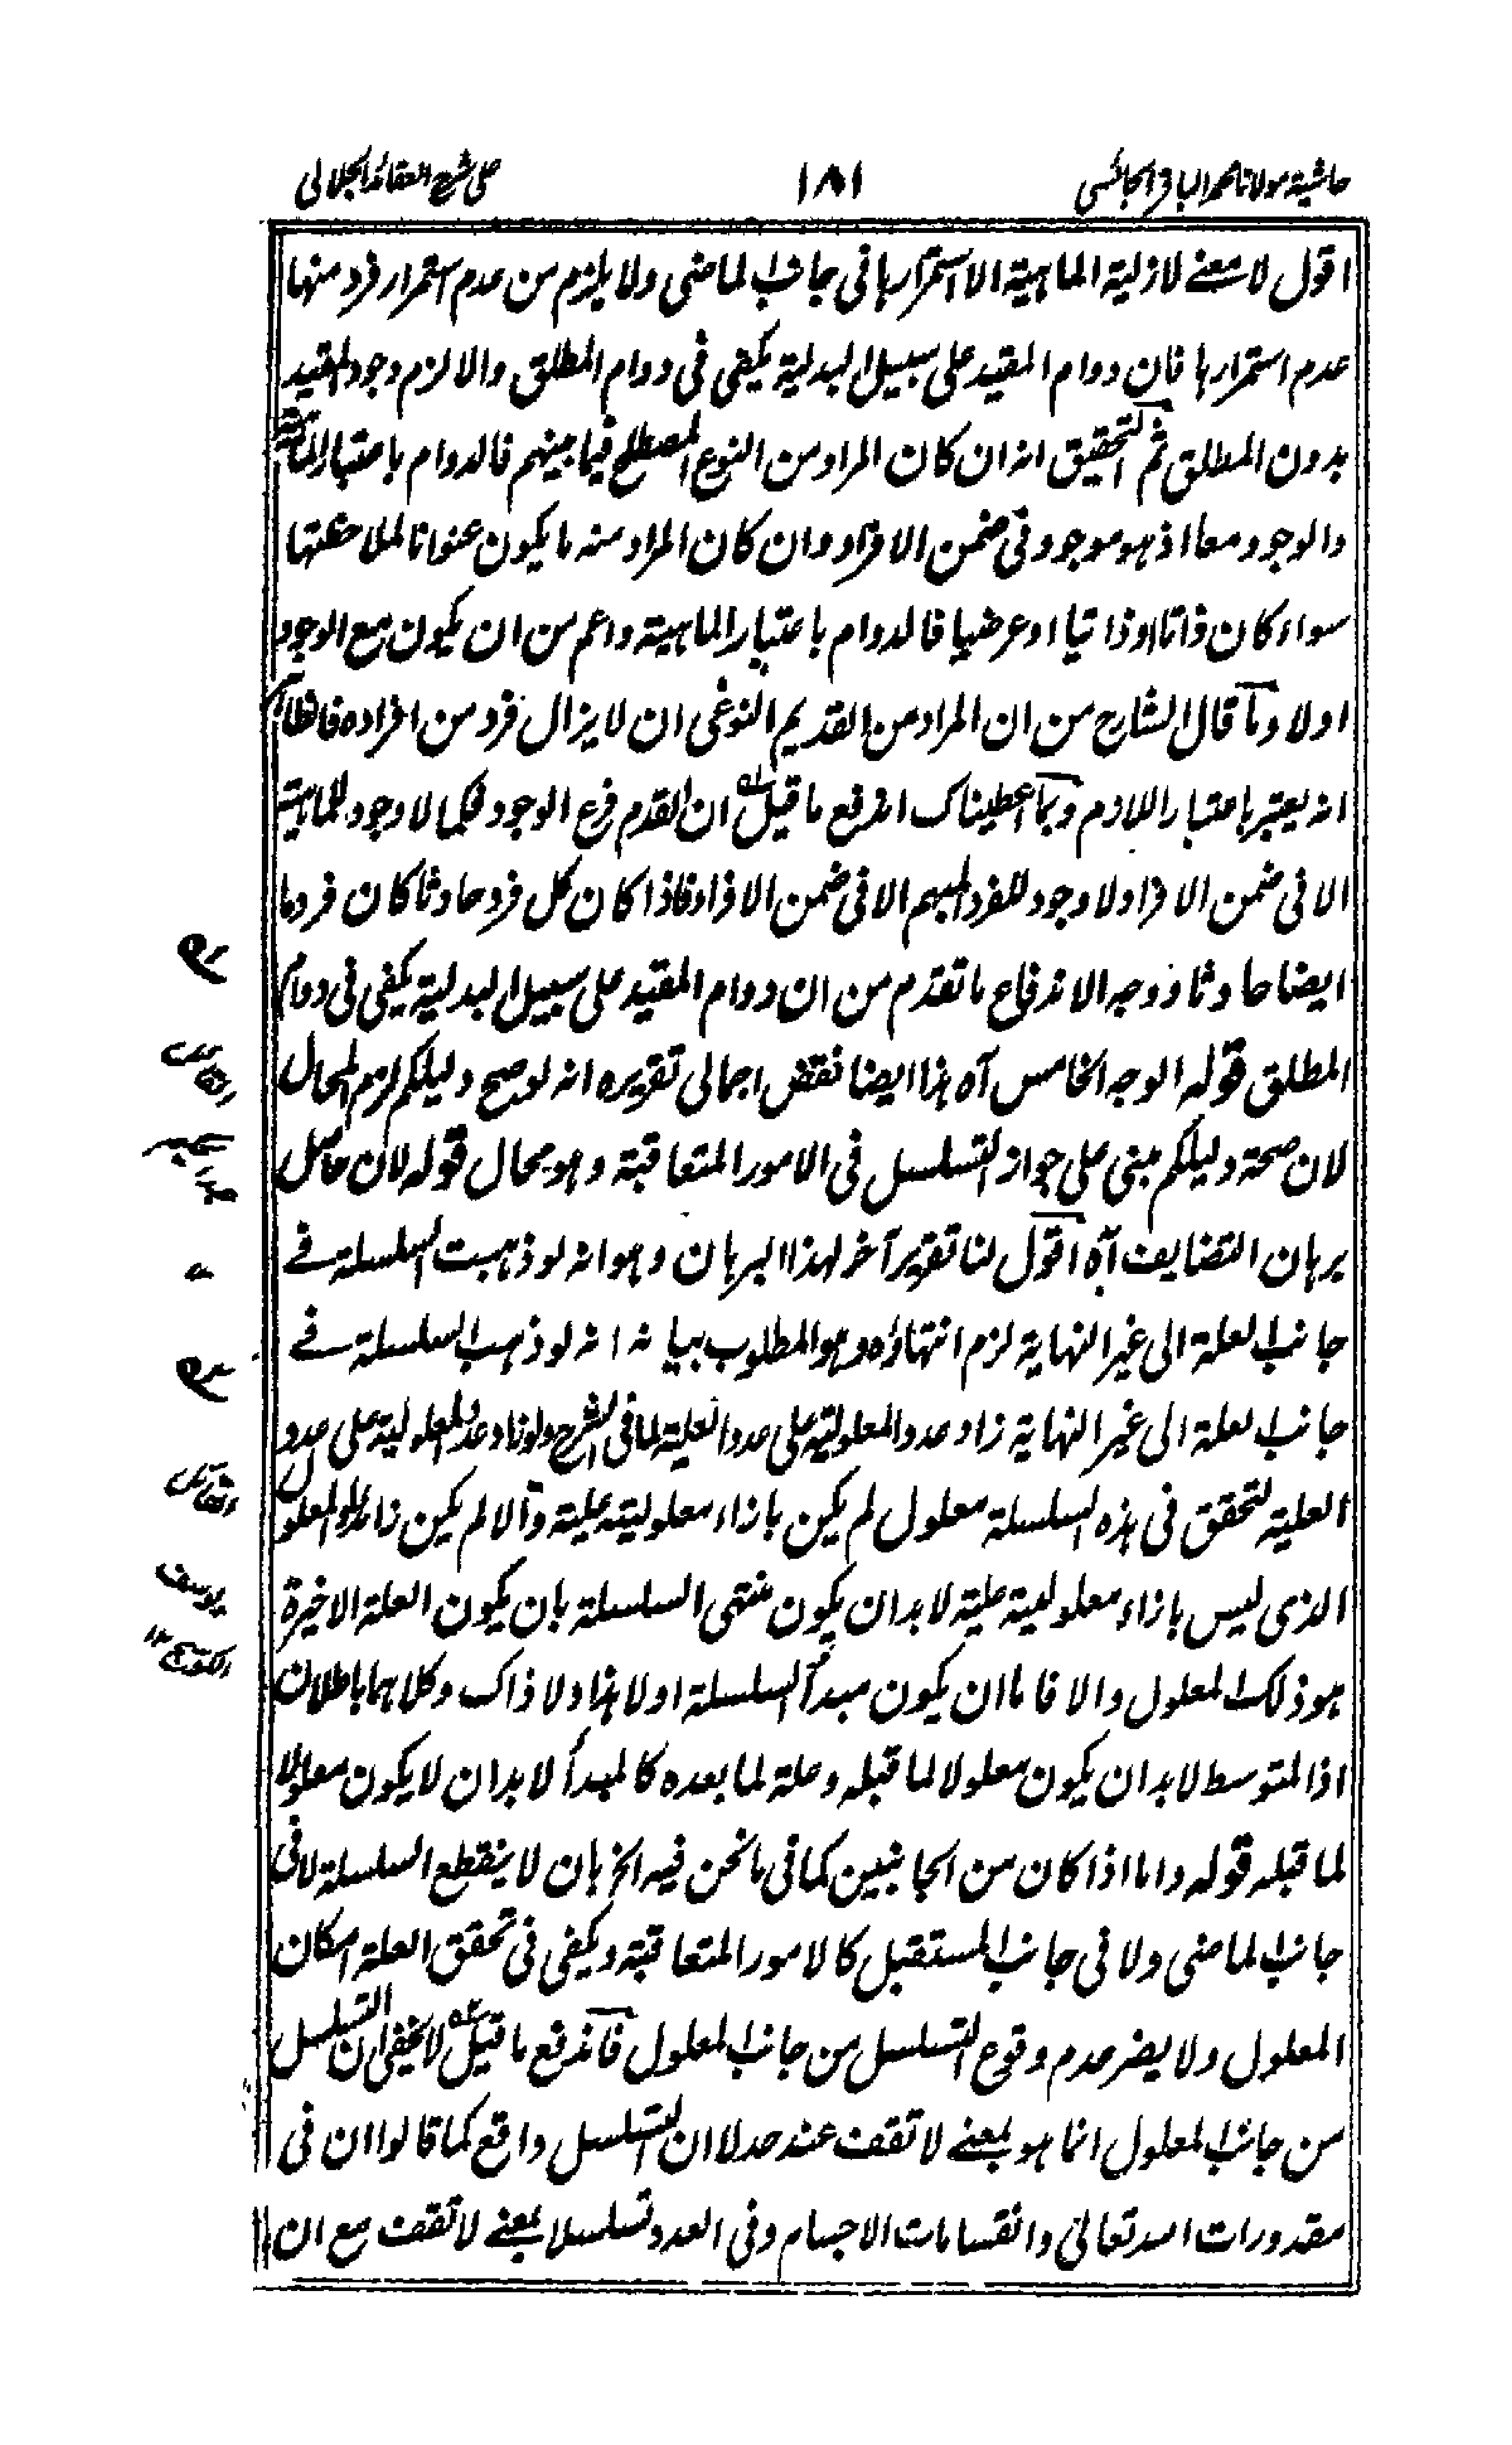 حاشیة مولانا محمد الباقر الجائسی ١٨١ على شرح العقائد الجلالی
اقول لا معنے لازلیة الماہیة الا استمرارہا فی جانب الماضی ولا یلزم من عدم استمرار فرد منہا
عدم استمرارہا فان دوام المقید علی سبیل البدلیة یکفی فی دوام المطلق والا لزم وجود المقید
بدون المطلق ثم التحقیق انہ ان کان المراد من النوع المصطلح فیما بینہم فالدوام باعتبار الماہیة
والوجود معا اذ ہو موجود فی ضمن الافراد وان کان المراد منہ ما یکون عنوانا لملاحظتہا
سواء کان ذاتا او ذاتیا او عرضیا فالدوام باعتبار الماہیة واعم من ان یکون مع الوجود
اولا وما قال الشارح من ان المراد من القدیم النوعی ان لا یزال فرد من افرادہ فالظاہر
انہ یعتبر باعتبار اللازم وبما اعطیناک اندفع ما قیل ان القدم فرع الوجود فکما لا وجود للماہیة
الا فی ضمن الافراد ولا وجود للفرد المبہم الا فی ضمن الافراد فاذا کان کل فرد حادثا کان فرد ما
ایضا حادثا ووجہ الاندفاع ما تقدم من ان دوام المقید علی سبیل البدلیة یکفی فی دوام
المطلق قولہ الوجہ الخامس آہ ہذا ایضا نقض اجمالی تقریرہ انہ لو صح دلیلکم لزم المحال
لان صحة دلیلکم مبنی علی جواز التسلسل فی الامور المتعاقبة وہو محال قولہ لان حاصل
برہان التضایف آہ اقول لنا تقریر آخر لہذا البرہان وہو انہ لو ذہبت السلسلة فے
جانب العلة الی غیر النہایة لزم انتہاؤہ وہو المطلوب بیانہ انہ لو ذہب السلسلة فے
جانب العلة الی غیر النہایة زاد عدد المعلولیة علی عدد العلیة لما فی الشرح ولو زاد عدد المعلولیة علی عدد
العلیة لتحقق فی ہذہ السلسلة معلول لم یکن بازاء معلولیتہ علیة والا لم یکن زائدا والمعلول
الذی لیس بازاء معلولیتہ علیة لا بد ان یکون منتہی السلسلة بان یکون العلة الاخیرة
ہو ذلک المعلول والا فاما ان یکون مبدأ السلسلة او لا ہذا ولا ذاک وکلاہما باطلان
اذ المتوسط لا بد ان یکون معلولا لما قبلہ وعلة لما بعدہ کالمبدأ لا بد ان لا یکون معلولا
لما قبلہ قولہ واما اذا کان من الجانبین کما فی ما نحن فیہ الخ بان لا ینقطع السلسلة لا فی
جانب الماضی ولا فی جانب المستقبل کالامور المتعاقبة ویکفی فی تحقق العلة امکان
المعلول ولا یضر عدم وقوع التسلسل من جانب المعلول فاندفع ما قیل لا یخفی ان التسلسل
من جانب المعلول انما ہو بمعنے لا تقف عند حد لا ان التسلسل واقع کما قالوا ان فی
مقدورات اللہ تعالی وانقسامات الاجسام وفی العدد تسلسلا بمعنے لا تقف مع ان
القائل
القائل
یوسف